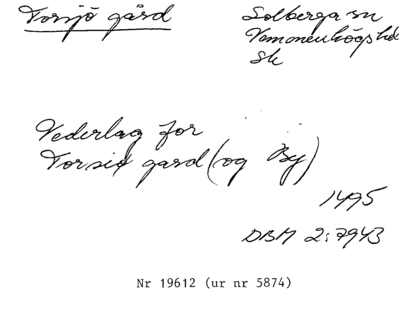 Torsjö gård
Solberga sn
Vemmenhögs hd
Sk
Vederlag for
Torsiø gard (og By)
1495
DBM 2:7943
Nr 19612 (ur nr 5874)